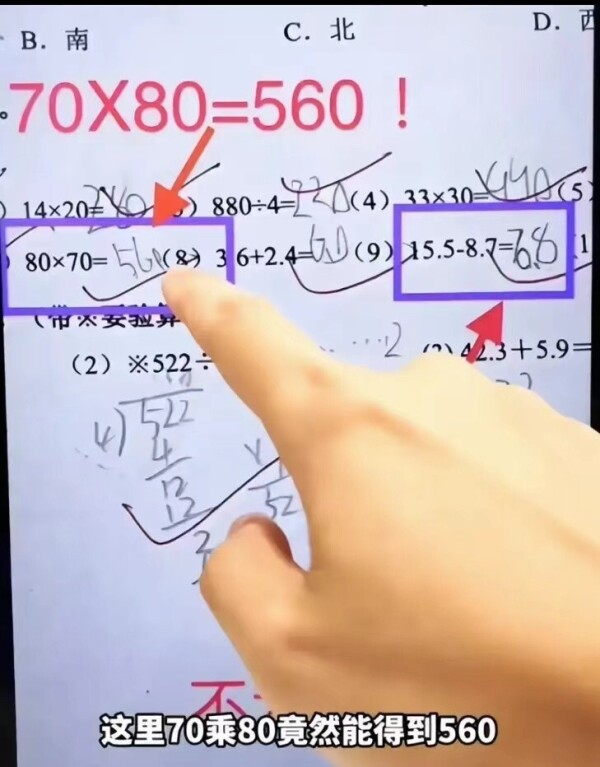 B. 南 C. 北 D.
70X80=560！
14×20=280 880÷4=220 (4) 33×30= (5)
80×70=560 (8) 3.6+2.4=6.0 (9) 15.5-8.7=6.8
(带※要验算
(2) ※522÷ ……2 42.3+5.9=
4)522
4
12
12
2
52
不
这里70乘80竟然能得到560